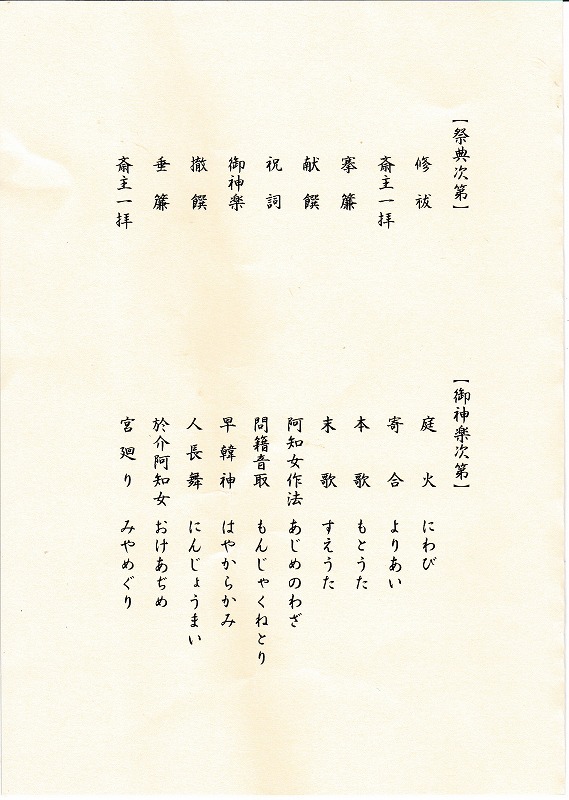 【祭典次第】
修祓
斎主一拝
搴簾
献饌
祝詞
御神楽
撤饌
垂簾
斎主一拝
【御神楽次第】
庭火 にわび
寄合 よりあい
本歌 もとうた
末歌 すえうた
阿知女作法 あじめのわざ
問籍音取 もんじゃくねとり
早韓神 はやからかみ
人長舞 にんじょうまい
於介阿知女 おけあぢめ
宮廻り みやめぐり